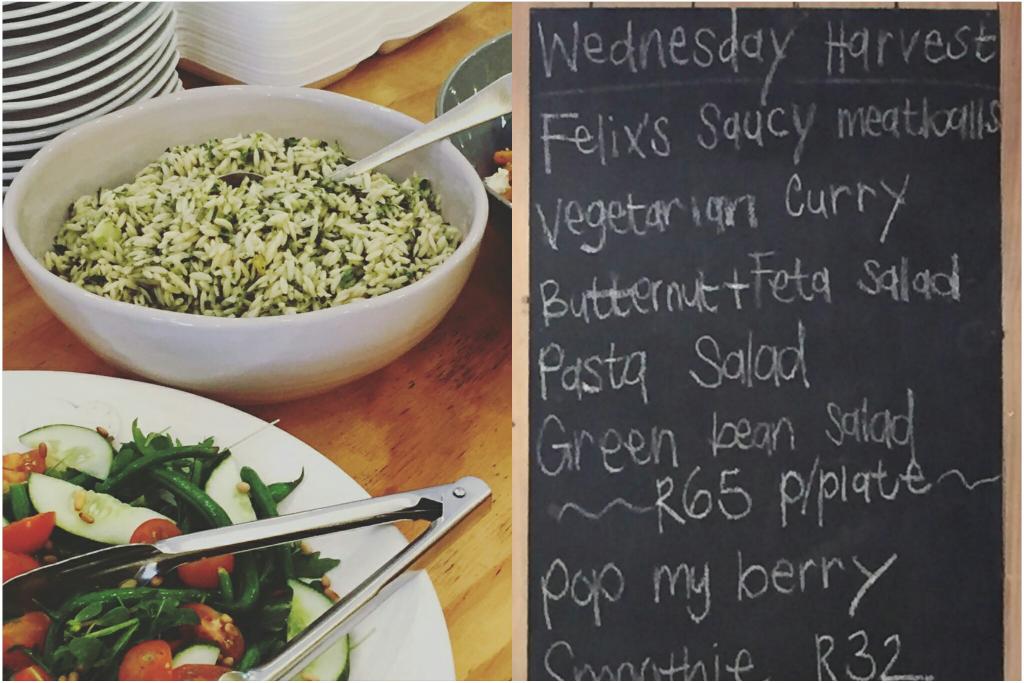 Wednesday Harvest
Felix's Saucy meatballs
Vegetarian Curry
Butternut+Feta Salad
Pasta Salad
Green bean Salad
R65 p/plate
pop my berry
Smoothie R32